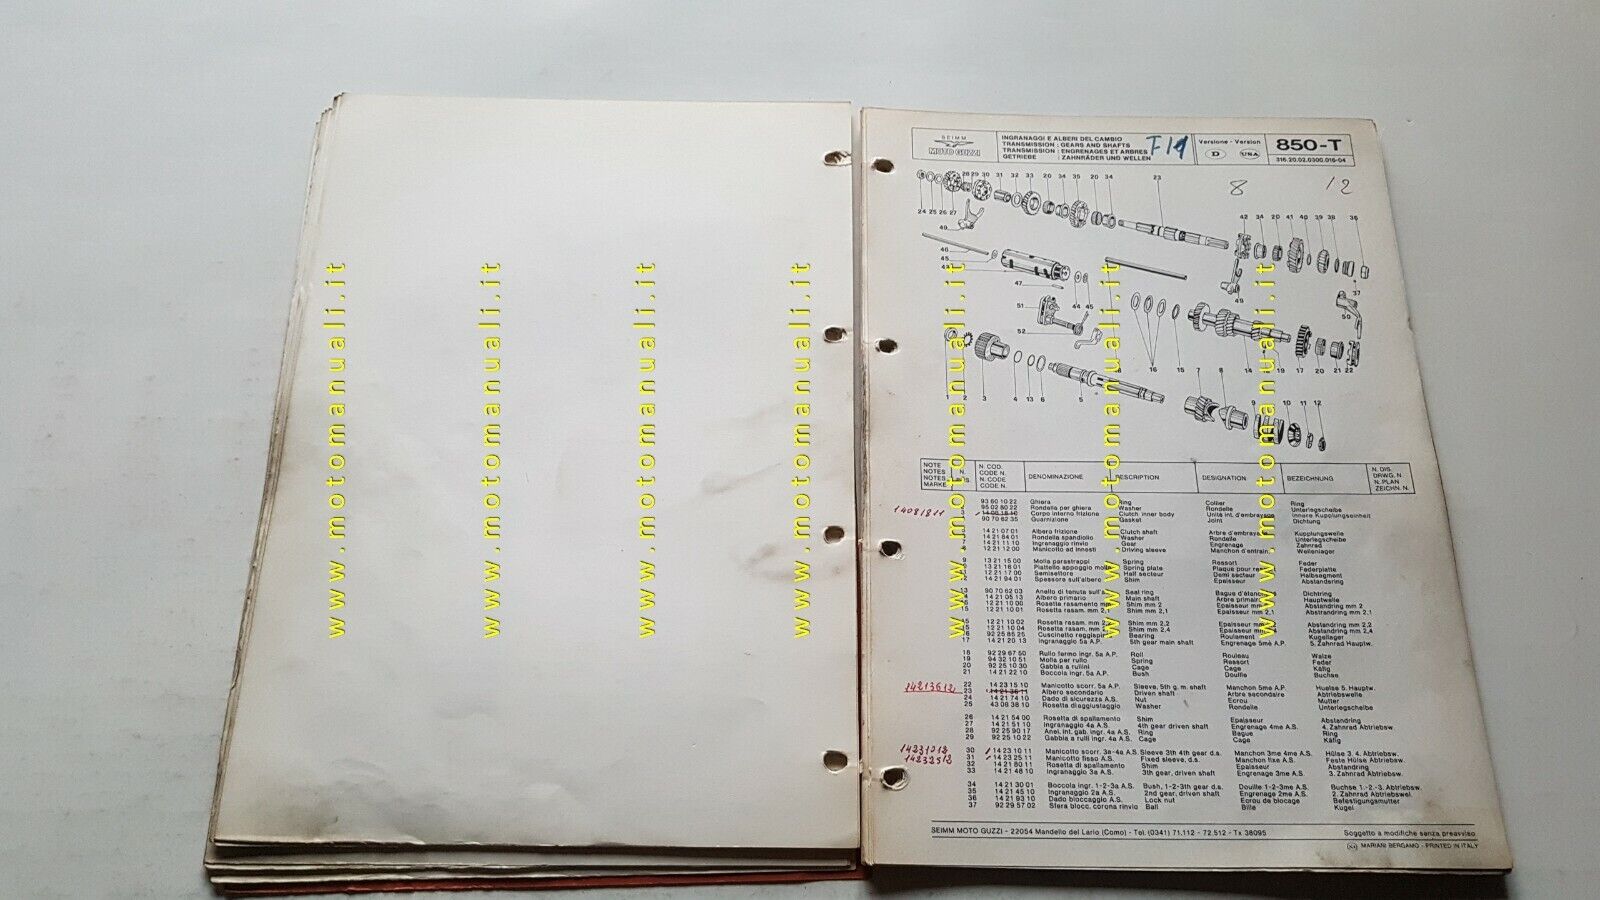 SEIMM
MOTO GUZZI
INGRANAGGI E ALBERI DEL CAMBIO
TRANSMISSION : GEARS AND SHAFTS
TRANSMISSION : ENGRENAGES ET ARBRES
GETRIEBE : ZAHNRÄDER UND WELLEN
F14
Versione - Version
D USA
850-T
316.20.02.0300.016-04
8 12
28 29 30 31 32 33 20 34 35 20 34 23
24 25 26 27
49
42 34 20 41 40 39 38 36
46
45
43
47
44 45
51
52
49
37
50
16 15 14 19 17 20 21 22
1 2 3 4 13 6 5 7 8 9 10 11 12
www.motomanuali.it
www.motomanuali.it
www.motomanuali.it
www.motomanuali.it
www.motomanuali.it
www.motomanuali.it
www.motomanuali.it
NOTE
NOTES
NOTES
MARKE
N. COD.
CODE N.
N. CODE
CODE N.
DENOMINAZIONE
DESCRIPTION
DESIGNATION
BEZEICHNUNG
N. DIS.
DRWG. N.
N. PLAN
ZEICHN. N.
93 60 10 22 Ghiera Ring Collier Ring
95 02 80 22 Rondella per ghiera Washer Rondelle Unterlegscheibe
14081811 3 14 08 18 10 Corpo interno frizione Clutch inner body Unité int. d'embrayage Innere Kupplungseinheit
90 70 62 35 Guarnizione Gasket Joint Dichtung
14 21 07 01 Albero frizione Clutch shaft Arbre d'embrayage Kupplungswelle
14 21 84 01 Rondella spandiolio Washer Rondelle Unterlegscheibe
14 21 11 10 Ingranaggio rinvio Gear Engrenage Zahnrad
12 21 12 00 Manicotto ad innesti Driving sleeve Manchon d'entrain. Wellenlager
9 13 21 15 00 Molla parastrappi Spring Ressort Feder
13 21 16 01 Piattello appoggio molla Spring plate Plaque pour res Federplatte
12 21 17 00 Semisettore Half secteur Demi secteur Halbsegment
14 21 94 01 Spessore sull'albero Shim Epaisseur Abstandering
13 90 70 62 03 Anello di tenuta sull'a Seal ring Bague d'étanch Dichtring
14 21 05 13 Albero primario Main shaft Arbre primaire Hauptwelle
12 21 10 00 Rosetta rasamento mm Shim mm 2 Epaisseur mm 2 Abstandring mm 2
15 12 21 10 01 Rosetta rasam. mm 2,1 Shim mm 2,1 Epaisseur mm 2,1 Abstrandring mm 2,1
15 12 21 10 02 Rosetta rasam. mm 2,2 Shim mm 2,2 Epaisseur mm Abstandring mm 2,2
12 21 10 04 Rosetta rasam. mm 2,4 Shim mm 2,4 Epaisseur mm 2,4 Abstandring mm 2,4
16 92 25 85 25 Cuscinetto reggispi Bearing Roulament Kugellager
17 14 21 20 13 Ingranaggio 5a A.P. 5th gear main shaft Engrenage 5mé A.P. 5. Zahnrad Hauptw.
18 92 29 67 50 Rullo fermo ingr. 5a A.P. Roll Rouleau Walze
19 94 32 10 51 Molla per rullo Spring Ressort Feder
20 92 25 10 30 Gabbia a rullini Cage Cage Käfig
21 14 21 22 10 Boccola ingr. 5a A.P. Bush Douille Buchse
22 14 23 15 10 Manicotto scorr. 5a A.P. Sleeve, 5th g. m. shaft Manchon 5me A.P. Huelse 5. Hauptw.
14213612 23 14 21 36 11 Albero secondario Driven shaft Arbre secondaire Abtriebswelle
24 14 21 74 10 Dado di sicurezza A.S. Nut Ecrou Mutter
25 43 08 38 10 Rosetta di aggiustaggio Washer Rondelle Unterlegscheibe
26 14 21 54 00 Rosetta di spallamento Shim Epaisseur Abstandring
27 14 21 51 10 Ingranaggio 4a A.S. 4th gear driven shaft Engrenage 4me A.S. 4. Zahnrad Abtriebsw.
28 92 25 90 17 Anel. int. gab. ingr. 4a A.S. Ring Bague Ring
29 92 25 10 22 Gabbia a rulli ingr. 4a A.S. Cage Cage Käfig
14231012 30 14 23 10 11 Manicotto scorr. 3a-4a A.S. Sleeve 3th 4th gear d.s. Manchon 3me 4me A.S. Hülse 3. 4. Abtriebsw.
14232512 31 14 23 25 11 Manicotto fisso A.S. Fixed sleeve, d.s. Manchon fixe A.S. Feste Hülse Abtriebsw.
32 14 21 80 11 Rosetta di spallamento Shim Epaisseur Abstandring
33 14 21 48 10 Ingranaggio 3a A.S. 3th gear, driven shaft Engrenage 3me A.S. 3. Zahnrad Abtriebsw.
34 14 21 30 01 Boccola ingr. 1-2-3a A.S. Bush, 1-2-3th gear d.s. Douille 1-2-3me A.S. Buchse 1.-2.-3. Abtriebsw.
35 14 21 45 10 Ingranaggio 2a A.S. 2nd gear, driven shaft Engrenage 2me A.S. 2. Zahnrad Abtriebswel.
36 14 21 93 10 Dado bloccaggio A.S. Lock nut Ecrou de blocage Befestigungsmutter
37 92 29 57 02 Sfera blocc. corona rinvio Ball Bille Kugel
SEIMM MOTO GUZZI - 22054 Mandello del Lario (Como) - Tel. (0341) 71.112 - 72.512 - Tx 38095
Soggetto a modifiche senza preavviso
MARIANI BERGAMO - PRINTED IN ITALY